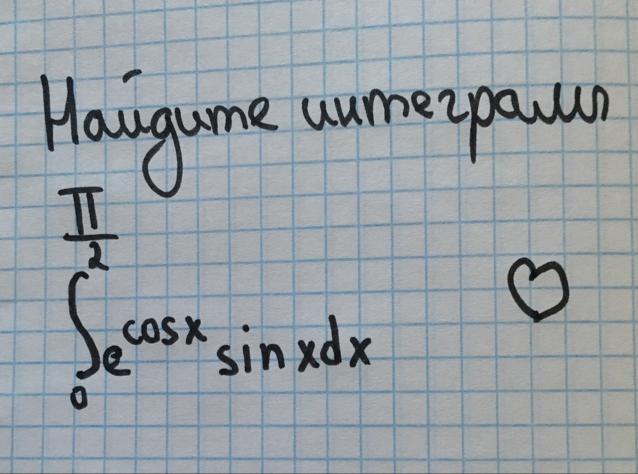 Найдите интегралы
π/2
∫₀ e^cosx sinxdx